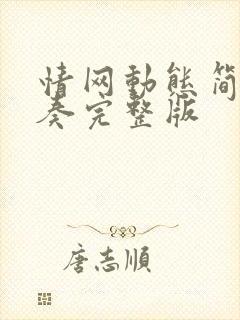 情网動態简
奏完整版
唐志順